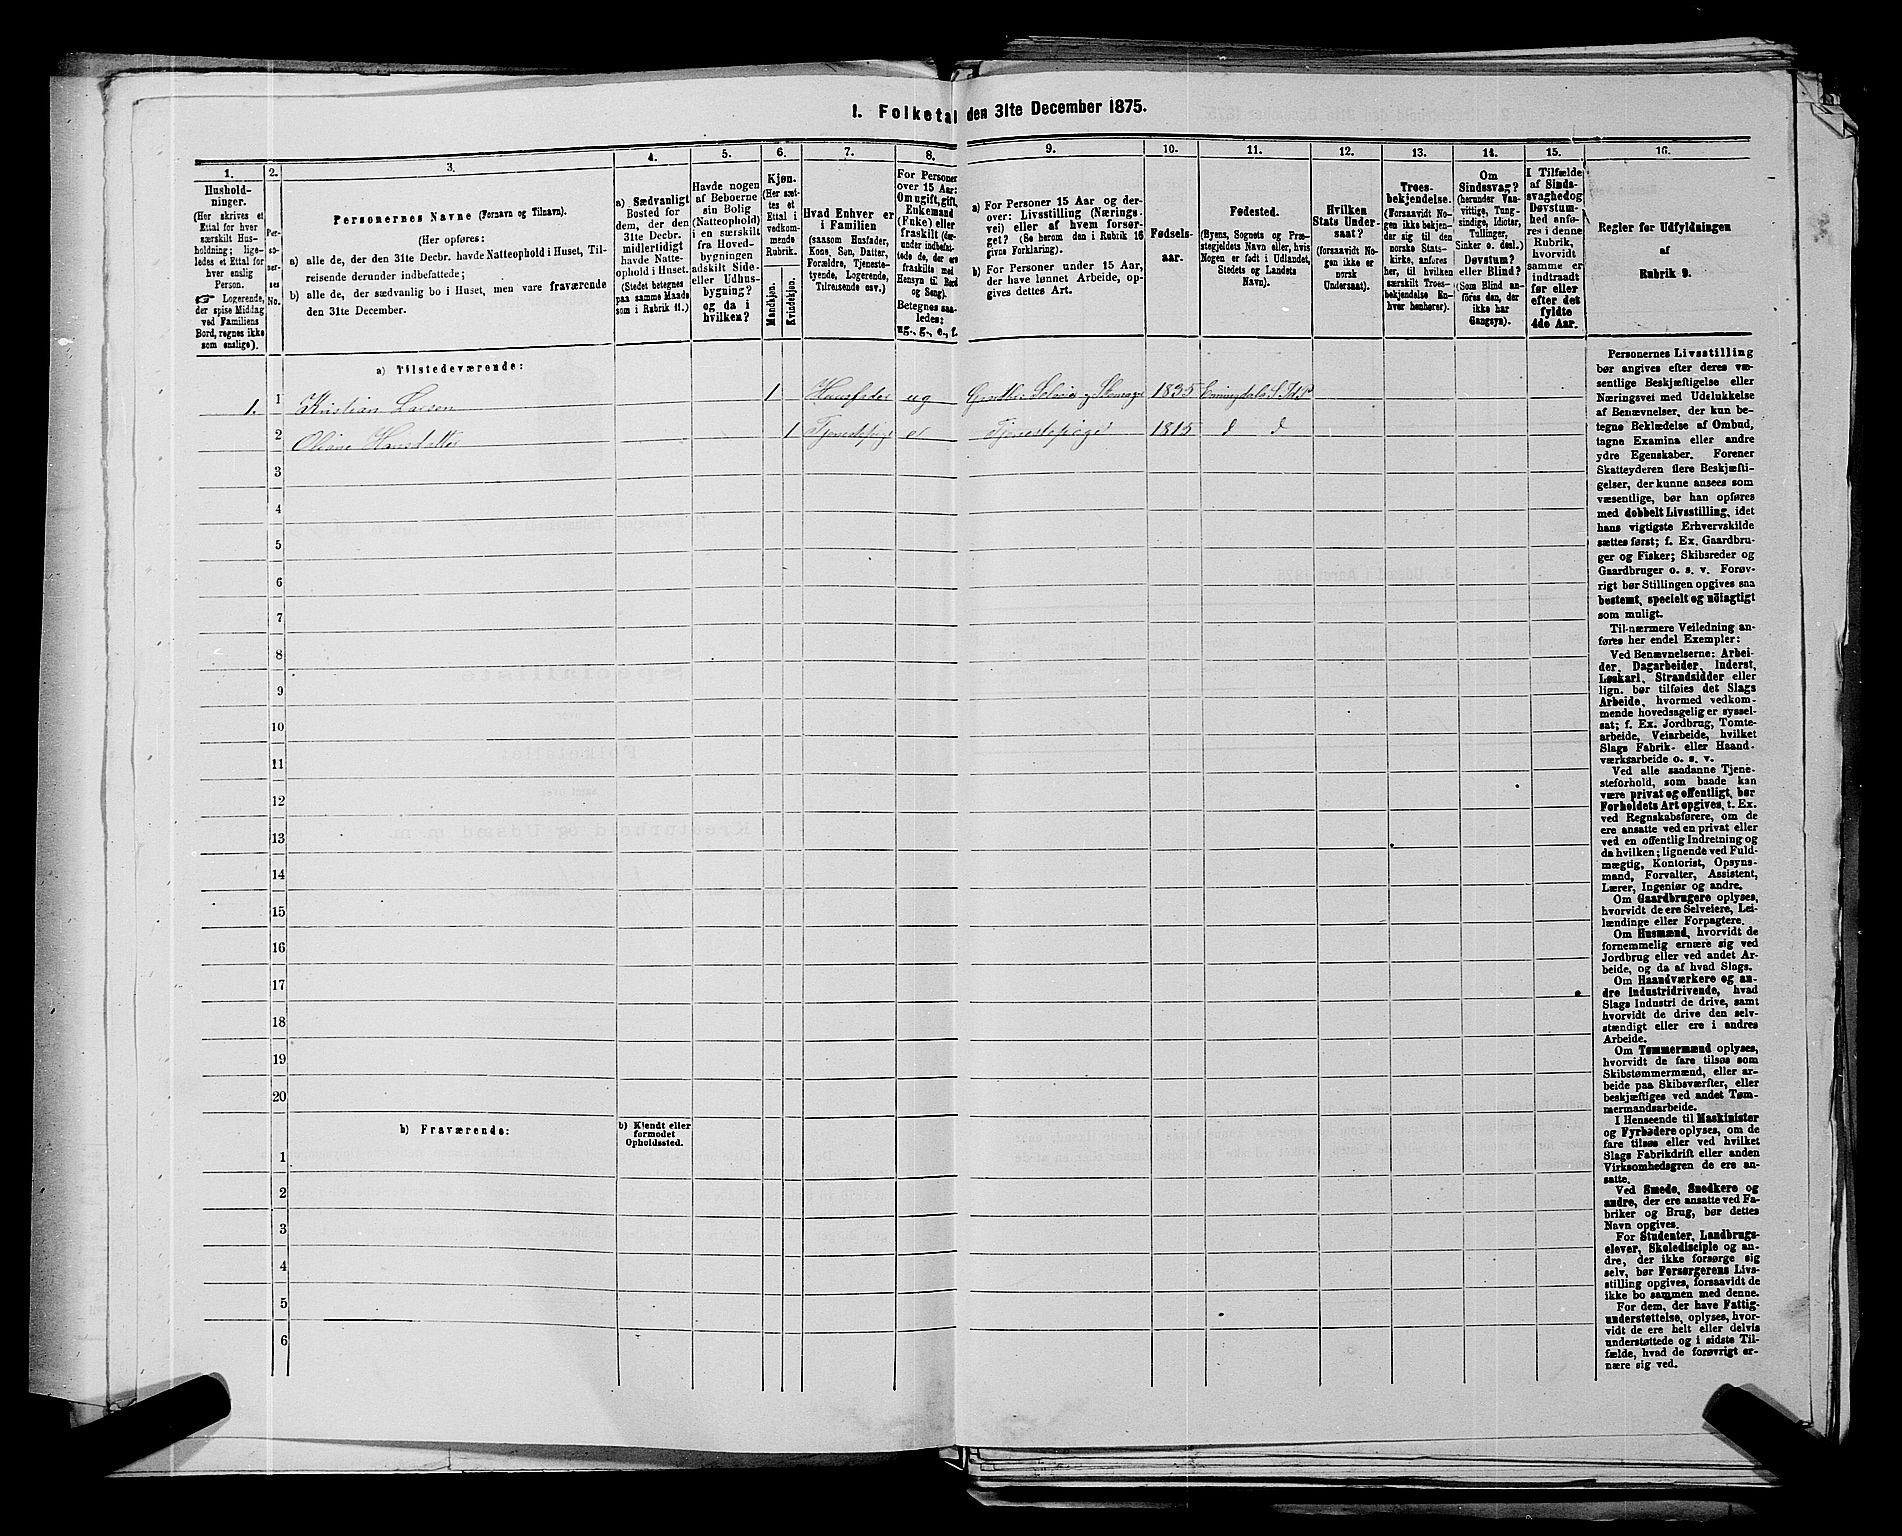 1. Folketal den 31te December 1875.
1.
Hushold-
ninger.
(Her skrives et
Ettal for hver
særskilt Hus-
holdning; lige-
ledes et Ettal for
hver enslig
Person.
☞ Logerende,
der spise Middag
ved Familiens
Bord, regnes ikke
som enslige).
2.
Per-
so-
ner-
nes
No.
3.
Personernes Navne (Fornavn og Tilnavn).
(Her opføres:
a) alle de, der den 31te Decbr. havde Natteophold i Huset, Til-
reisende derunder indbefattede;
b) alle de, der sædvanlig bo i Huset, men vare fraværende
den 31te December.
4.
a) Sædvanligt
Bosted for
dem, der den
31te Decbr.
midlertidigt
havde Natte-
ophold i Huset.
(Stedet betegnes
paa samme Maade
som i Rubrik 11.)
5.
Havde nogen
af Beboerne
sin Bolig
(Natteophold)
i en særskilt
fra Hoved-
bygningen
adskilt Side-
eller Udhus-
bygning?
og da i
hvilken?
6.
Kjøn.
(Her sæt-
tes et
Ettal i
vedkom-
mende
Rubrik.
Mandkjøn.
Kvindekjøn.
7.
Hvad Enhver er
i Familien
(saasom Husfader,
Kone, Søn, Datter,
Forældre, Tjeneste-
tyende, Logerende,
Tilreisende osv.)
8.
For Personer
over 15 Aar:
Om ugift, gift,
Enkemand
(Enke) eller
fraskilt (der-
under indbefat-
tede de, der ere
fraskilte med
Hensyn til Bord
og Seng).
Betegnes saa-
ledes:
ug., g., e., f.
9.
a) For Personer 15 Aar og der-
over: Livsstilling (Nærings-
vei) eller af hvem forsør-
get? (Se herom den i Rubrik 16
givne Forklaring).
b) For Personer under 15 Aar,
der have lønnet Arbeide, op-
gives dettes Art.
10.
Fødsels-
aar.
11.
Fødested.
(Byens, Sognets og Præ-
stegjeldets Navn eller, hvis
Nogen er født i Udlandet,
Stedets og Landets
Navn).
12.
Hvilken
Stats Under-
saat?
(forsaavidt No-
gen ikke er
norsk
Undersaat).
13.
Troes-
bekjendelse.
(Forsaavidt No-
gen ikke bekjen-
der sig til den
norske Stats-
kirke, anføres
her, til hvilken
særskilt Troes-
bekjendelse En-
hver henhører).
14.
Om
Sindssvag?
(herunder Vaa-
vittige, Tung-
sindige, Idioter,
Tullinger,
Sinker o. desl.)
Døvstum?
eller Blind?
(Som Blind an-
føres den, der
ikke har
Gangsyn).
15.
I Tilfælde
af Sinds-
svaghed og
Døvstum-
hed anfø-
res i denne
Rubrik,
hvorvidt
samme er
indtraadt
før eller
efter det
fyldte
4de Aar.
16.
Regler for Udfyldningen
af
Rubrik 9.
a) Tilstedeværende:
1. 1 Kristian Larsen 1 Huusfader ug Gaardbr: Selveier og Skomager 1835 Enningdals S. Id. P
2 Oliane Hansdatter 1 Tjenestepige Tjenestepige 1815 d d
3
4
5
6
7
8
9
10
11
12
13
14
15
16
17
18
19
20
b) Fraværende:
b) Kjendt eller
formodet
Opholdssted.
1
2
3
4
5
6
Personernes Livsstilling
bør angives efter deres væ-
sentlige Beskjæftigelse eller
Næringsvei med Udelukkelse
af Benævnelser, der kun be-
tegne Beklædelse af Ombud,
tagne Examina eller andre
ydre Egenskaber. Forener
Skatteyderen flere Beskjæfti-
gelser, der kunne ansees som
væsentlige, bør han opføres
med dobbelt Livsstilling, idet
hans vigtigste Erhvervskilde
sættes først; f. Ex. Gaardbru-
ger og Fisker; Skibsreder og
Gaardbruger o. s. v. Forøv-
rigt bør Stillingen opgives saa
bestemt, specielt og nöiagtigt
som muligt.
Til nærmere Veiledning an-
føres her endel Exempler:
Ved Benævnelserne: Arbei-
der, Dagarbeider, Inderst,
Løskarl, Strandsidder eller
lign. bør tilføies det Slags
Arbeide, hvormed vedkom-
mende hovedsagelig er syssel-
sat; f. Ex. Jordbrug, Tomte-
arbeide, Veiarbeide, hvilket
Slags Fabrik- eller Haand-
værksarbeide o. s. v.
Ved alle saadanne Tjene-
steforhold, som baade kan
være privat og offentligt, bør
Forholdets Art opgives, t. Ex.
ved Regnskabsførere, om de
ere ansatte ved en privat eller
ved en offentlig Indretning og
da hvilken; lignende ved Fuld-
mægtig, Kontorist, Opsyns-
mand, Forvalter, Assistent,
Lærer, Ingeniør og andre.
Om Gaardbrugere oplyses,
hvorvidt de ere Selveiere, Lei-
lændinge eller Forpagtere.
Om Husmænd, hvorvidt de
fornemmelig ernære sig ved
Jordbrug eller ved andet Ar-
beide, og da af hvad Slags.
Om Haandværkere og an-
dre Industridrivende, hvad
Slags Industri de drive, samt
hvorvidt de drive den selv-
stændigt eller ere i andres
Arbeide.
Om Tømmermænd oplyses,
hvorvidt de fare tilsøs som
Skibstømmermænd, eller ar-
beide paa Skibsværfter, eller
beskjæftiges ved andet Tøm-
mermandsarbeide.
I Henseende til Maskinister
og Fyrbødere oplyses, om de
fare tilsøs eller ved hvilket
Slags Fabrikdrift eller anden
Virksomhedsgren de ere an-
satte.
Ved Smede, Snedkere og
andre, der ere ansatte ved Fa-
briker og Brug, bør dettes
Navn opgives.
For Studenter, Landbrugs-
elever, Skoledisciple og an-
dre, der ikke forsørge sig
selv, bør Forsørgerens Livs-
stilling opgives, forsaavidt de
ikke bo sammen med denne.
For dem, der have Fattig-
understøttelse, oplyses, hvor-
vidt de ere helt eller delvis
understøttede og i sidste Til-
fælde, hvad de forøvrigt er-
nære sig ved.